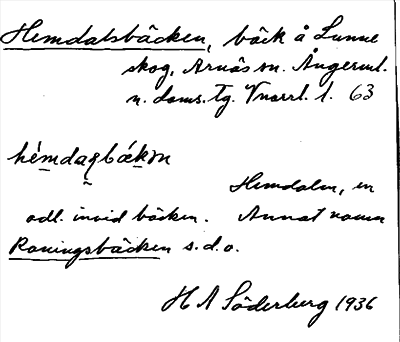 Hemdalsbäcken, bäck å Lunne
skog, Arnäs sn. Ångerml.
n. doms. Tg. Ynorrl. l. 63
hémdaꞎbákɔn
Hemdalen, en
odl. invid bäcken. Annat namn
Roningsbäcken s.d.o.
H A Söderberg 1936